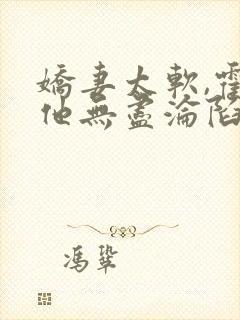 嬌妻太軟,霍
他無盡淪陷
馮鞏